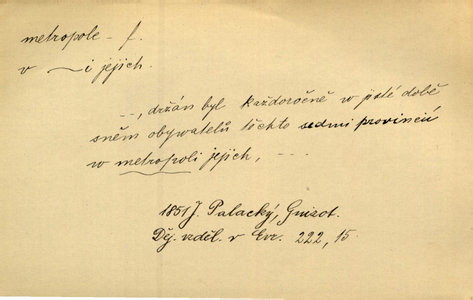 metropole – f.
v ~i jejich.
– –, držán byl každoročně w jisté době
sněm obywatelů těchto sedmi provincií
w metropoli jejich, – – –
1851 J. Palacký, Guizot.
Děj. vzděl. v Evr. 222, 15.